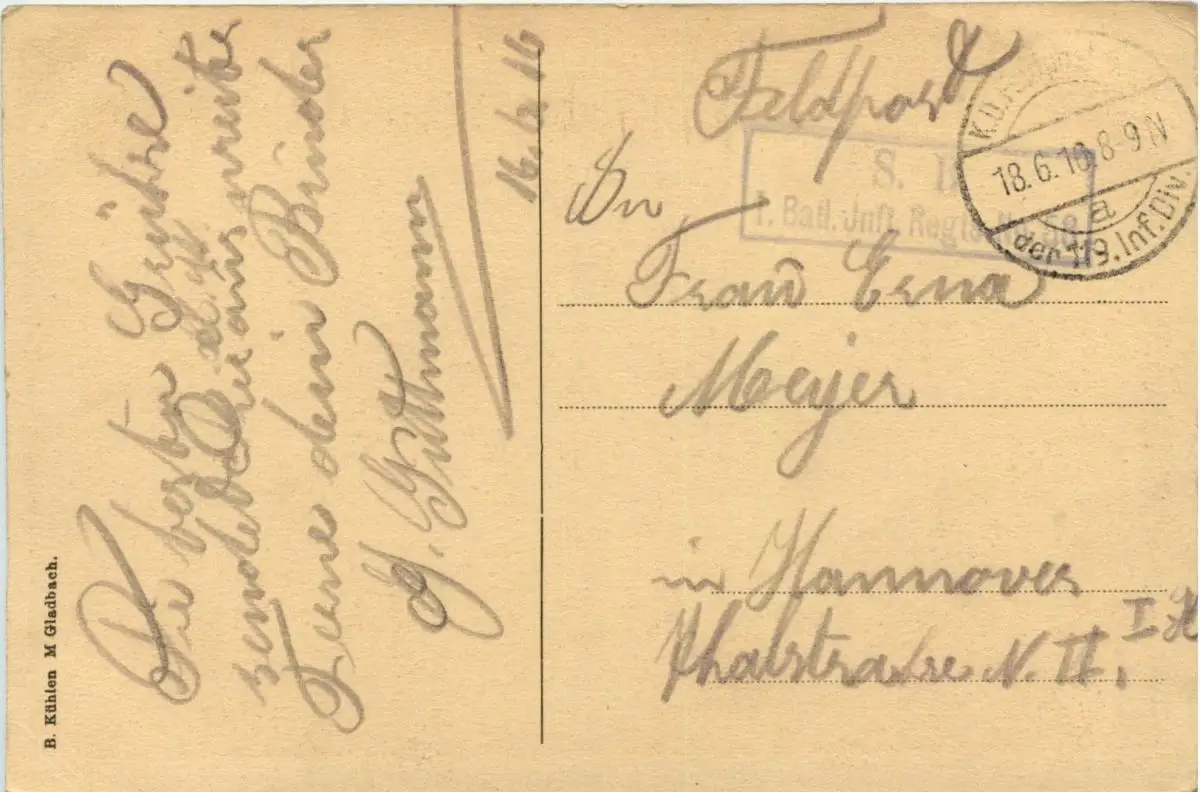 Die besten Grüße
sendet Dir aus weiter
Ferne dein Bruder
G. Guttmann
16.6.16
B. Kühlen M Gladbach.
Feldpost
S. B.
1. Batl. Inft. Regts. Nr. 58
18.6.16.8-9 N
a
der 119. Inf. Div.
An
Frau Erna
Meyer
in Hannover
Thalstrasse N. II, I